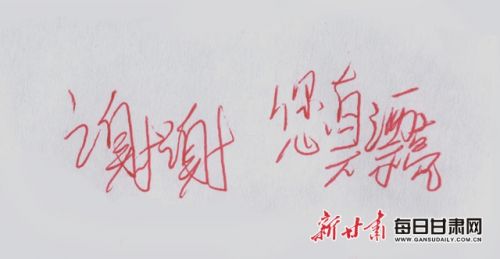 谢谢 您真漂亮
新甘肃 每日甘肃网
WWW.GANSUDAILY.COM.CN